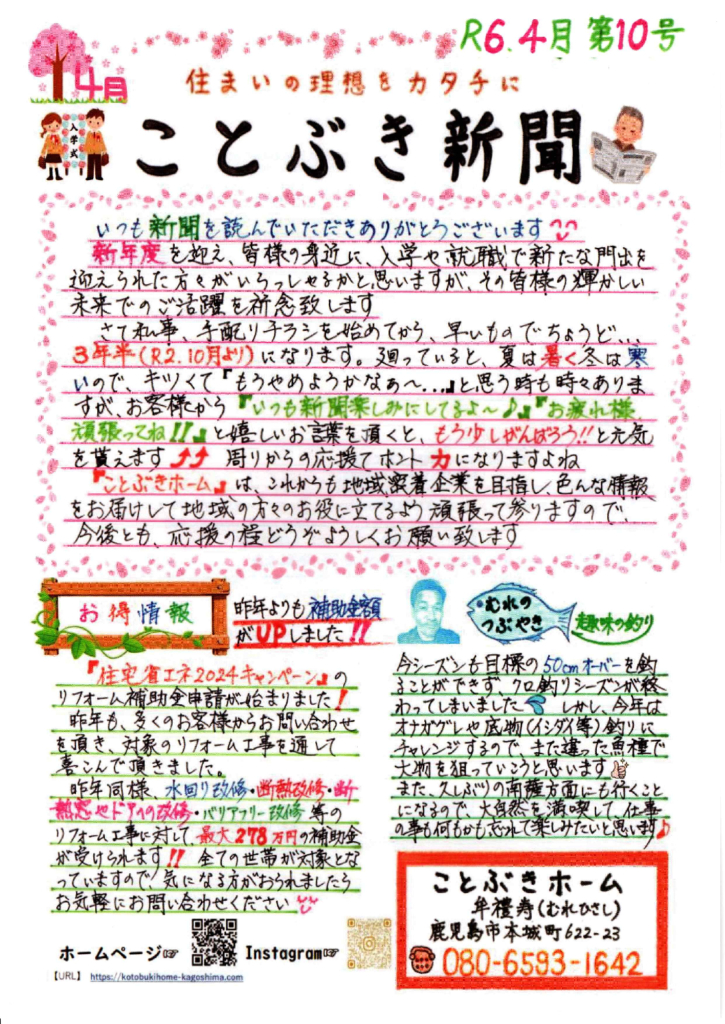 R6.4月 第10号
4月
入学式
住まいの理想をカタチに
ことぶき新聞
いつも新聞を読んでいただきありがとうございます
新年度を迎え、皆様の身近に、入学や就職で新たな門出を
迎えられた方々がいらっしゃるかと思いますが、その皆様の輝かしい
未来でのご活躍を祈念致します
さて私事、手配りチラシを始めてから、早いものでちょうど、、、
3年半(R2.10月より)になります。廻っていると、夏は暑く冬は寒
いので、キツくて『もうやめようかなぁ〜...』と思う時も時々ありま
すが、お客様から『いつも新聞楽しみにしてるよ〜♪』『お疲れ様、
頑張ってね!!』と嬉しいお言葉を頂くと、もう少しがんばろう!!と元気
を貰えます⤴⤴ 周りからの応援てホント力になりますよね
『ことぶきホーム』は、これからも地域密着企業を目指し、色んな情報
をお届けして地域の方々のお役に立てるよう頑張って参りますので、
今後とも、応援の程どうぞよろしくお願い致します
お得情報
昨年よりも補助金額
がUPしました!!
『住宅省エネ2024キャンペーン』の
リフォーム補助金申請が始まりました!
昨年も、多くのお客様からお問い合わせ
を頂き、対象のリフォーム工事を通して
喜こんで頂きました。
昨年同様、水回り改修・断熱改修・断
熱窓やドアへの改修・バリアフリー改修 等の
リフォーム工事に対して、最大278万円の補助金
が受けられます!! 全ての世帯が対象とな
っていますので、気になる方がおられましたら
お気軽にお問い合わせください
むれの
つぶやき
趣味の釣り
今シーズンも目標の50cmオーバーを釣
ることができず、クロ釣りシーズンが終
わってしまいました しかし、今年は
オナガグレや底物(イシダイ等)釣りに
チャレンジするので、また違った魚種で
大物を狙っていこうと思います
また、久しぶりの南薩方面にも行くこと
になるので、大自然を満喫して、仕事
の事も何もかも忘れて楽しみたいと思います♪
ことぶきホーム
牟禮寿(むれひさし)
鹿児島市本城町622-23
080-6593-1642
ホームページ☞ Instagram☞
【URL】 https://kotobukihome-kagoshima.com